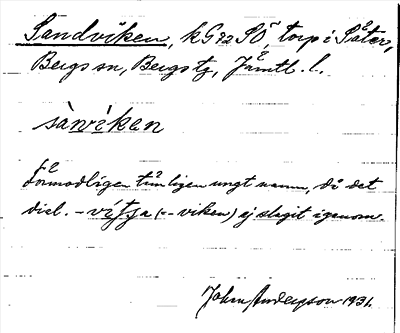 Sandviken, kG22SÖ, torp i Säter,
Bergs sn, Bergs tg, Jämtl. l.,
sànviken
Förmodligen tämligen ungt namn, då det
dial. -vitja (= -viken) ej slagit igenom.
John Andersson 1931.